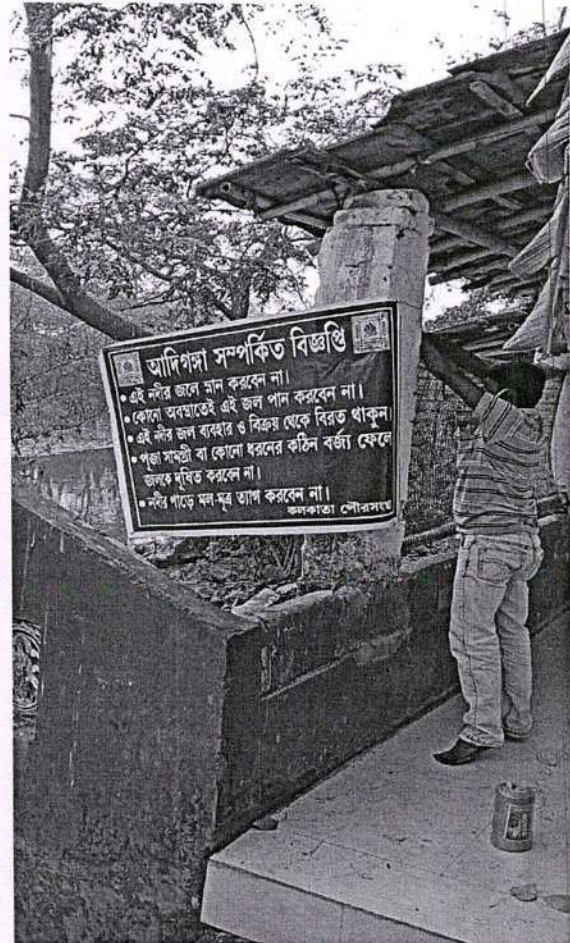 আদিগঙ্গা সম্পর্কিত বিজ্ঞপ্তি
• এই নদীর জলে স্নান করবেন না।
• কোনো অবস্থাতেই এই জল পান করবেন না।
• এই নদীর জল ব্যবহার ও বিক্রয় থেকে বিরত থাকুন।
• পূজা সামগ্রী বা কোনো ধরনের কঠিন বর্জ্য ফেলে
জলকে দূষিত করবেন না।
• নদীর পাড়ে মল-মূত্র ত্যাগ করবেন না।
কলকাতা পৌরসংস্থা